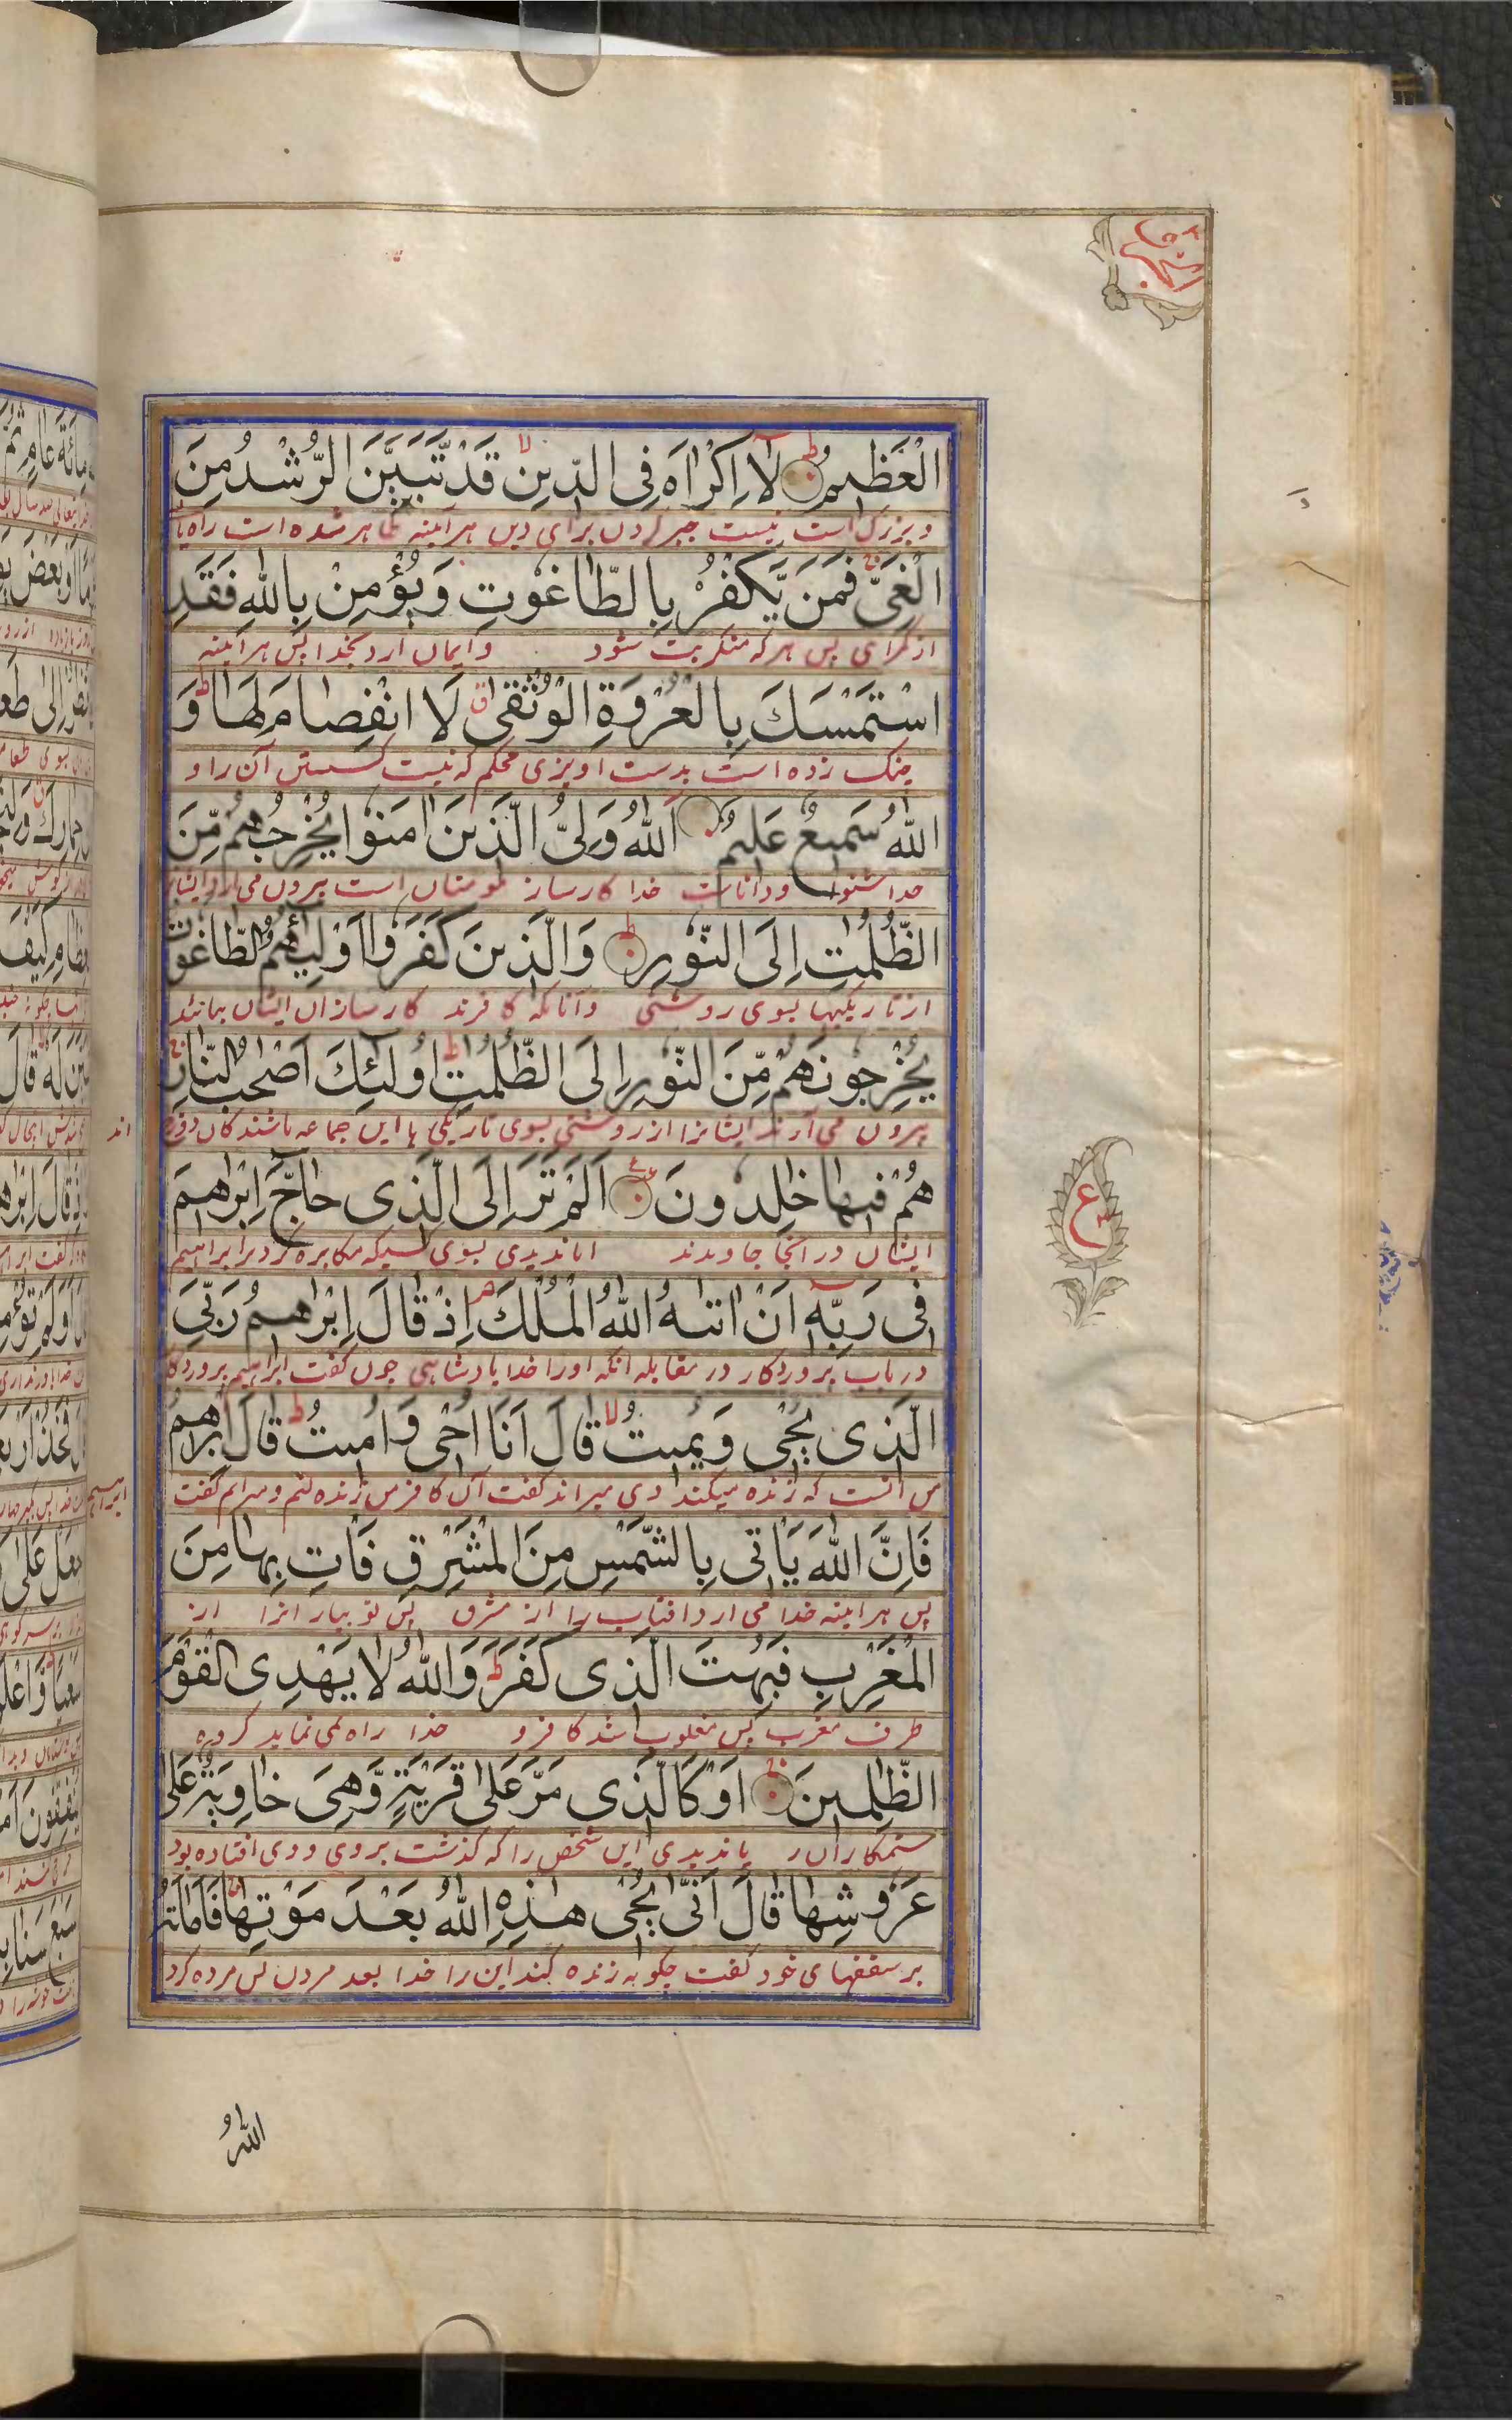 الْعَظِیْمُ لَاۤ اِكْرَاهَ فِی الدِّیْنِ قَدْ تَّبَیَّنَ الرُّشْدُ مِنَ
و بزرگ است نیست جبر کردن برای دین هر آینه ظاهر شده است راه یا
الْغَیِّ فَمَنْ یَّكْفُرْ بِالطَّاغُوْتِ وَیُؤْمِنْ بِاللّٰهِ فَقَدِ
از گمراهی پس هر که منکر بت شود و ایمان آرد بخدا پس هر آینه
اسْتَمْسَكَ بِالْعُرْوَةِ الْوُثْقٰی لَا انْفِصَامَ لَهَا وَ
چنک زده است بدست آویزی محکم که نیست گسستن آن را و
اللّٰهُ سَمِیْعٌ عَلِیْمٌ اَللّٰهُ وَلِیُّ الَّذِیْنَ اٰمَنُوْا یُخْرِجُهُمْ مِّنَ
خدا شنوا و دانا است خدا کارساز مومنان است بیرون می آرد ایشانرا
الظُّلُمٰتِ اِلَی النُّوْرِ وَالَّذِیْنَ كَفَرُوْا اَوْلِیٰٓـُٔهُمُ الطَّاغُوْتُ
از تاریکیها بسوی روشنی و آنانکه کافرند کارسازان ایشان بتانند
یُخْرِجُوْنَهُمْ مِّنَ النُّوْرِ اِلَی الظُّلُمٰتِ اُولٰٓئِكَ اَصْحٰبُ النَّارِ
بیرون می آرند ایشانرا از روشنی بسوی تاریکی ها این جماعه باشندگان دوزخ اند
هُمْ فِیْهَا خٰلِدُوْنَ اَلَمْ تَرَ اِلَی الَّذِیْ حَآجَّ اِبْرٰهٖمَ
ایشان در آنجا جاویدند آیا ندیدی بسوی کسیکه مکابره کرد با ابراهیم
فِیْ رَبِّهٖۤ اَنْ اٰتٰىهُ اللّٰهُ الْمُلْكَ اِذْ قَالَ اِبْرٰهٖمُ رَبِّیَ
در باب پروردکار در مقابله آنکه اورا خدا پادشاهی چون گفت ابراهیم پروردکا
الَّذِیْ یُحْیٖ وَیُمِیْتُ قَالَ اَنَا اُحْیٖ وَاُمِیْتُ قَالَ اِبْرٰهٖمُ
من آنست که زنده میکند و می میراند گفت آن کافر من زنده کنم و میرانم گفت ابراهیم
فَاِنَّ اللّٰهَ یَاْتِیْ بِالشَّمْسِ مِنَ الْمَشْرِقِ فَاْتِ بِهَا مِنَ
پس هر آینه خدا می آرد آفتاب را از مشرق پس تو بیار آنرا از
الْمَغْرِبِ فَبُهِتَ الَّذِیْ كَفَرَ وَاللّٰهُ لَا یَهْدِی الْقَوْمَ
طرف مغرب پس مغلوب شد کافر و خدا راه نمی نماید گروه
الظّٰلِمِیْنَ اَوْ كَالَّذِیْ مَرَّ عَلٰی قَرْیَةٍ وَّهِیَ خَاوِیَةٌ عَلٰی
ستمکاران را یا ندیدی این شخص را که گذشت بر دهی و وی افتاده بود
عُرُوْشِهَا قَالَ اَنّٰی یُحْیٖ هٰذِهِ اللّٰهُ بَعْدَ مَوْتِهَا فَاَمَاتَهُ
بر سقفهای خود گفت چگونه زنده کند این را خدا بعد مردن پس مرده کرد
ع
اللّٰهُ